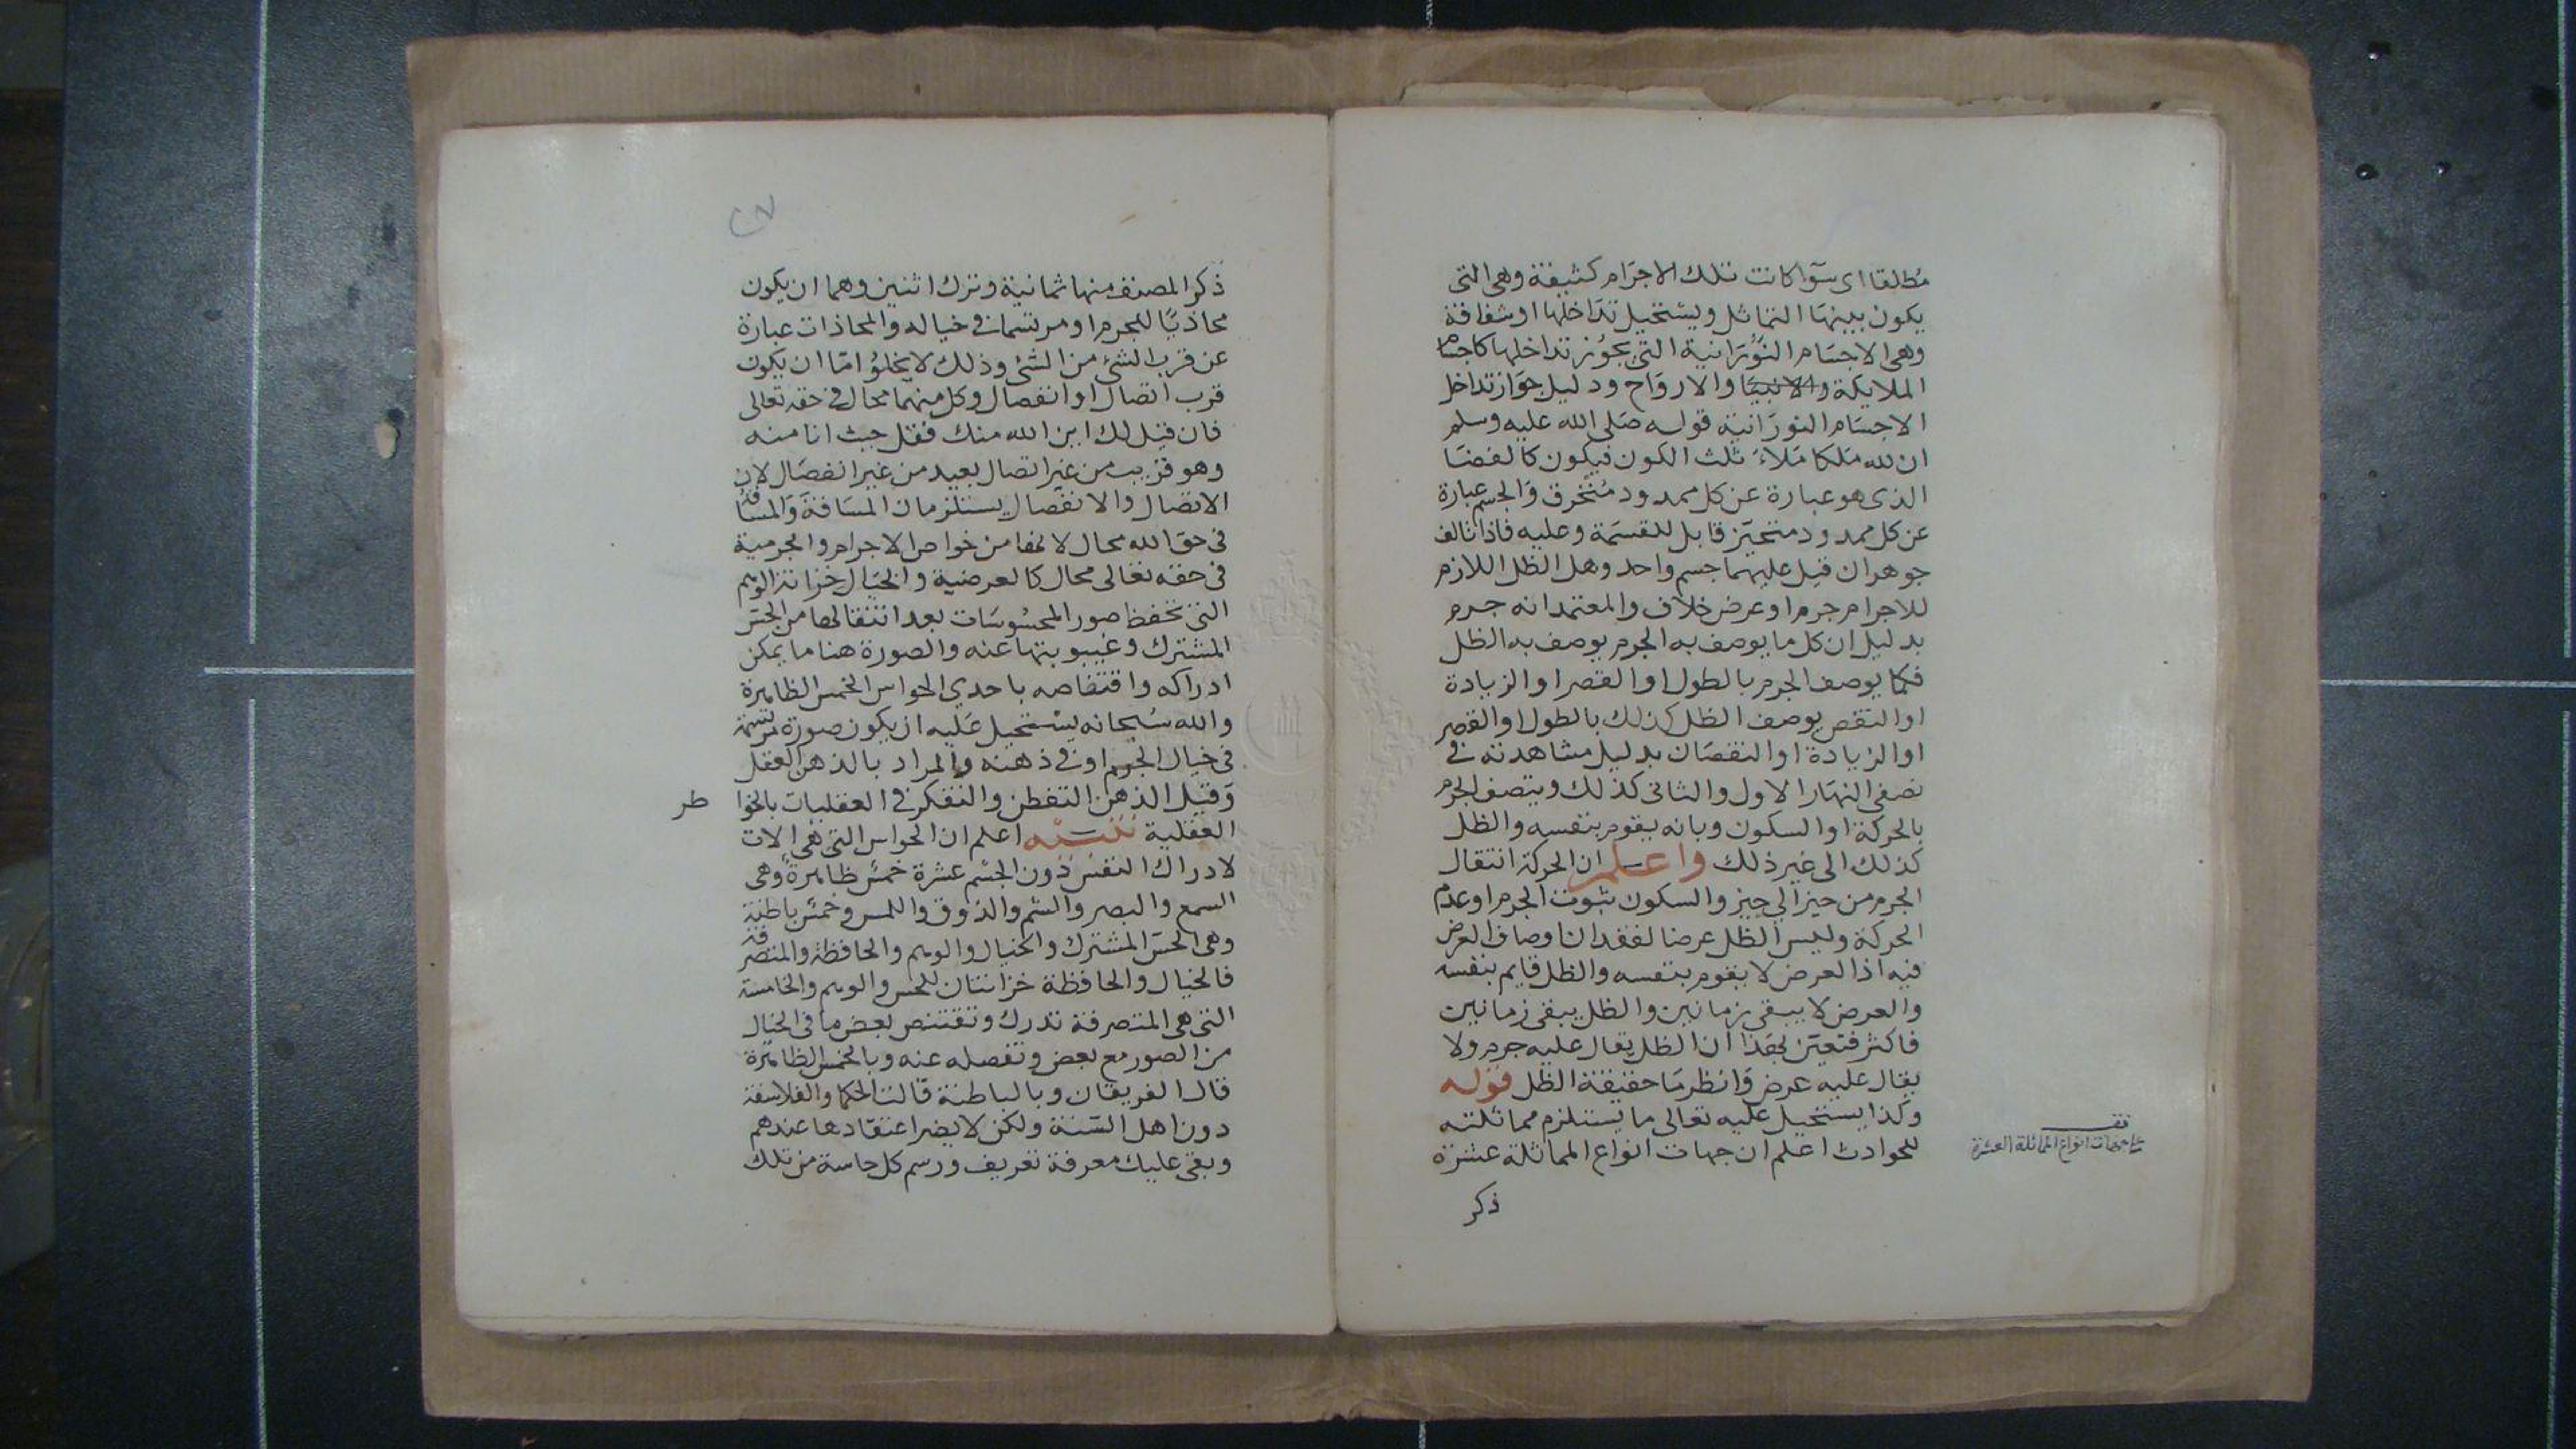 مطلقا اى سوآ كانت تلك الاجرام كثيفة وهى التى
يكون بينها التماثل ويستحيل تداخلها او شفافة
وهى الاجسام النورانية التى يجوز تداخلها كاجسام
الملايكة والانبيا والارواح ودليل جواز تداخل
الاجسام النورانية قوله صلى الله عليه وسلم
ان لله ملكا ملاء ثلث الكون فيكون كالفضا
الذى هو عبارة عن كل ممدود منخرق والجسم عبارة
عن كل ممدود متحيز قابل للقسمة وعليه فاذا تالف
جوهران قيل عليهما جسم واحد وهل الظل اللازم
للاجرام جرم او عرض خلاف والمعتمد انه جرم
بدليل ان كل ما يوصف به الجرم يوصف به الظل
فكما يوصف الجرم بالطول او القصر او الزيادة
او النقص يوصف الظل كذلك بالطول او القصر
او الزيادة او النقصان بدليل مشاهدته فى
نصفى النهار الاول والثانى كذلك ويتصف الجرم
بالحركة او السكون وبانه يقوم بنفسه والظل
كذلك الى غير ذلك واعلم ان الحركة انتقال
الجرم من حيز الى حيز والسكون ثبوت الجرم او عدم
الحركة وليس الظل عرضا لفقدان اوصاف العرض
فيه اذ العرض لا يقوم بنفسه والظل قايم بنفسه
والعرض لا يبقى زمانين والظل يبقى زمانين
فاكثر فتعين بهذا ان الظل يقال عليه جرم ولا
يقال عليه عرض وانظر ما حقيقة الظل قوله
وكذا يستحيل عليه تعالى ما يستلزم مماثلته
للحوادث اعلم ان جهات انواع المماثلة عشرة
ذكر
جهات انواع المماثلة العشرة
ذكر المصنف منها ثمانية وترك اثنين وهما ان يكون
محاذيا للجرم او مرتسما فى خياله والمحاذات عبارة
عن قرب الشئ من الشئ وذلك لا يخلو اما ان يكون
قرب اتصال او انفصال وكل منهما محال فى حقه تعالى
فان قيل لك اين الله منك فقل حيث انا منه
وهو قريب من غير اتصال بعيد من غير انفصال لان
الاتصال والانفصال يستلزمان المسافة والمسافة
فى حق الله محال لانها من خواص الاجرام والجرمية
فى حقه تعالى محال كالعرضية والخيال خزانة الوهم
التى تحفظ صور المحسوسات بعد انتقالها من الحس
المشترك وغيبوبتها عنه والصورة هنا ما يمكن
ادراكه واقتناصه باحدي الحواس الخمس الظاهرة
والله سبحانه يستحيل عليه ان يكون صورة مرتسمة
فى خيال الجرم او فى ذهنه والمراد بالذهن العقل
وقيل الذهن التفطن والتفكر فى العقليات بالخوا
طر
العقلية تنبيه اعلم ان الحواس التى هى الات
لادراك النفس دون الجسم عشرة خمس ظاهرة وهى
السمع والبصر والشم والذوق واللمس وخمس باطنية
وهى الحس المشترك والخيال والوهم والحافظة والمتصرفة
فالخيال والحافظة خزانتان للحس والوهم والخامسة
التى هى المتصرفة تدرك وتقتنص بعض ما فى الخيال
من الصور مع بعض وتفصله عنه وبالخمس الظاهرة
قال الفريقان وبالباطنة قالت الحكما والفلاسفة
دون اهل السنة ولكن لا يضر اعتقادها عندهم
وبقى عليك معرفة تعريف ورسم كل حاسة من تلك